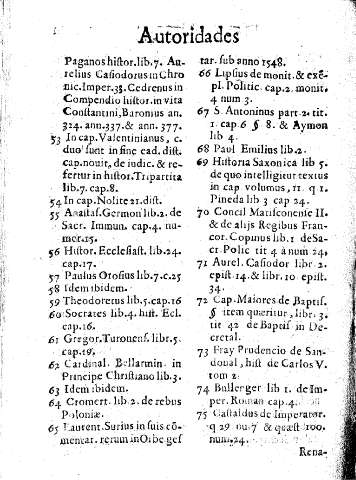 Autoridades
Paganos histor. lib. 7. Au-
relius Casiodorus in Chro
nic. Imper. 38. Cedrenus in
Compendio histor. in vita
Constantini, Baronius an.
324. ann. 337. & ann. 377.
53 In cap. Valentinianus, c.
duo sunt in fine ead. dist.
cap. novit, de iudic. & re-
fertur in histor. Tripartita
lib. 7. cap. 8.
54 In cap. Nolite 21. dist.
55 Anastas. Germon. lib. 2. de
Sacr. Immun. cap. 4. nu-
mer. 15.
56 Histor. Ecclesiast. lib. 24.
cap. 17.
57 Paulus Orosius lib. 7. c. 25
58 Idem ibidem.
59 Theodoretus lib. 5. cap. 16
60 Socrates lib. 4. hist. Ecl.
cap. 16.
61 Gregor. Turonens. libr. 5.
cap. 19.
62 Cardinal. Bellarmin. in
Principe Christiano lib. 3.
63 Idem ibidem.
64 Cromert. lib. 2. de rebus
Poloniæ.
65 Laurent. Surius in suis cō-
mentar. rerum in Orbe ges
tar. sub anno 1548.
66 Lipsius de monit. & exē-
pl. Politic. cap. 2. monit.
4 num 3.
67 S. Antoninus part. 2. tit.
1. cap. 6 § 8. & Aymon
lib 4.
68 Paul Emilius lib. 2.
69 Historia Saxonica lib 5.
de quo intelligitur textus
in cap volumus, 11. q 1.
Pineda lib 3 cap 24.
70 Concil Matisconense II.
& de alijs Regibus Fran-
cor. Copinus lib 1. de Sa-
cr. Polic tit 4 à num 24.
71 Aurel. Casiodor libr 2.
epist 14. & libr. 10 epist.
34.
72 Cap. Maiores de Baptis.
§ item quæritur, libr. 3.
tit 42 de Baptis in De-
cretal.
73 Fray Prudencio de San-
doual, hist de Carlos V.
tom 2.
74 Bullerger lib 1. de Im-
per. Roman cap. 4.
75 Castaldus de Imperator.
q 29 nu. 7 & quæst 100.
num. 24.
Rena-